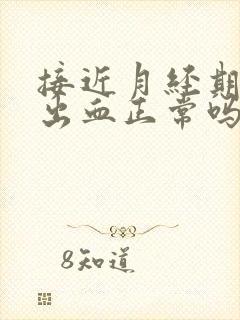 接近月经期
出血正常吗
8知道